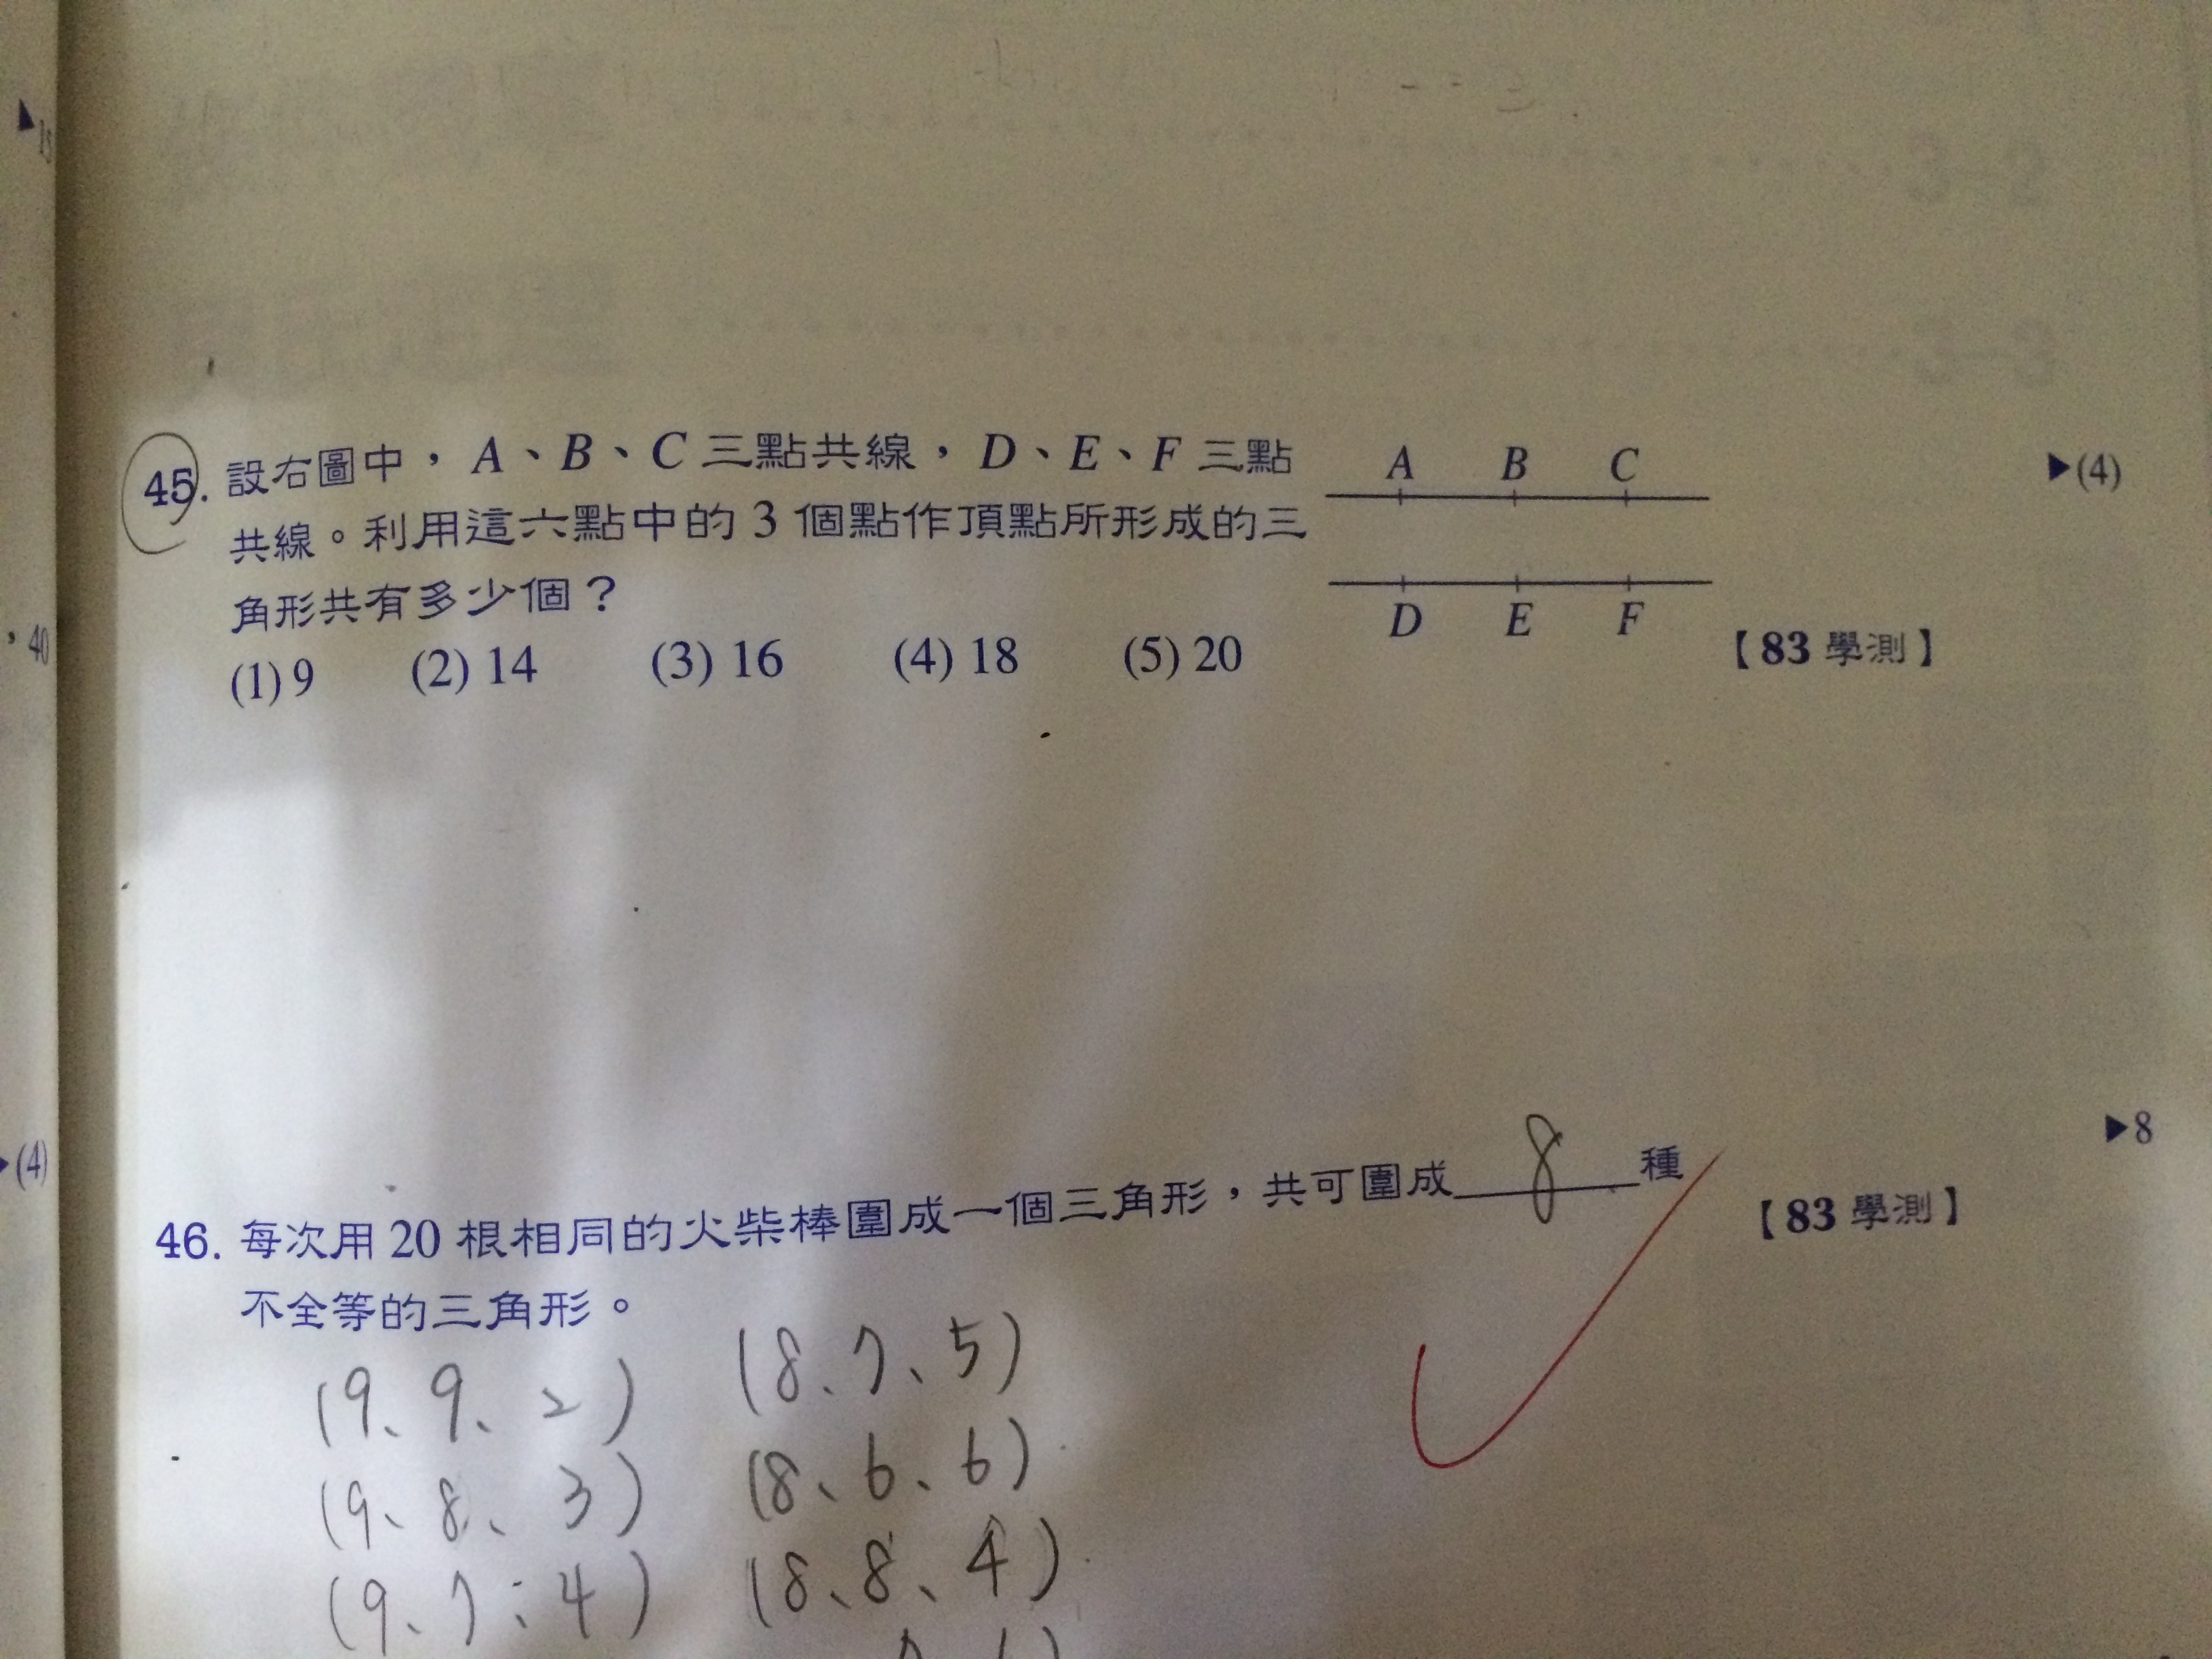 45. 設右圖中，A、B、C 三點共線，D、E、F 三點
共線。利用這六點中的 3 個點作頂點所形成的三
角形共有多少個？
(1) 9 (2) 14 (3) 16 (4) 18 (5) 20
【83 學測】
A B C
D E F
▶(4)
46. 每次用 20 根相同的火柴棒圍成一個三角形，共可圍成 8 種
不全等的三角形。
【83 學測】
▶8
(9、9、2)
(9、8、3)
(9、7、4)
(8、7、5)
(8、6、6)
(8、8、4)
，40
▶(4)